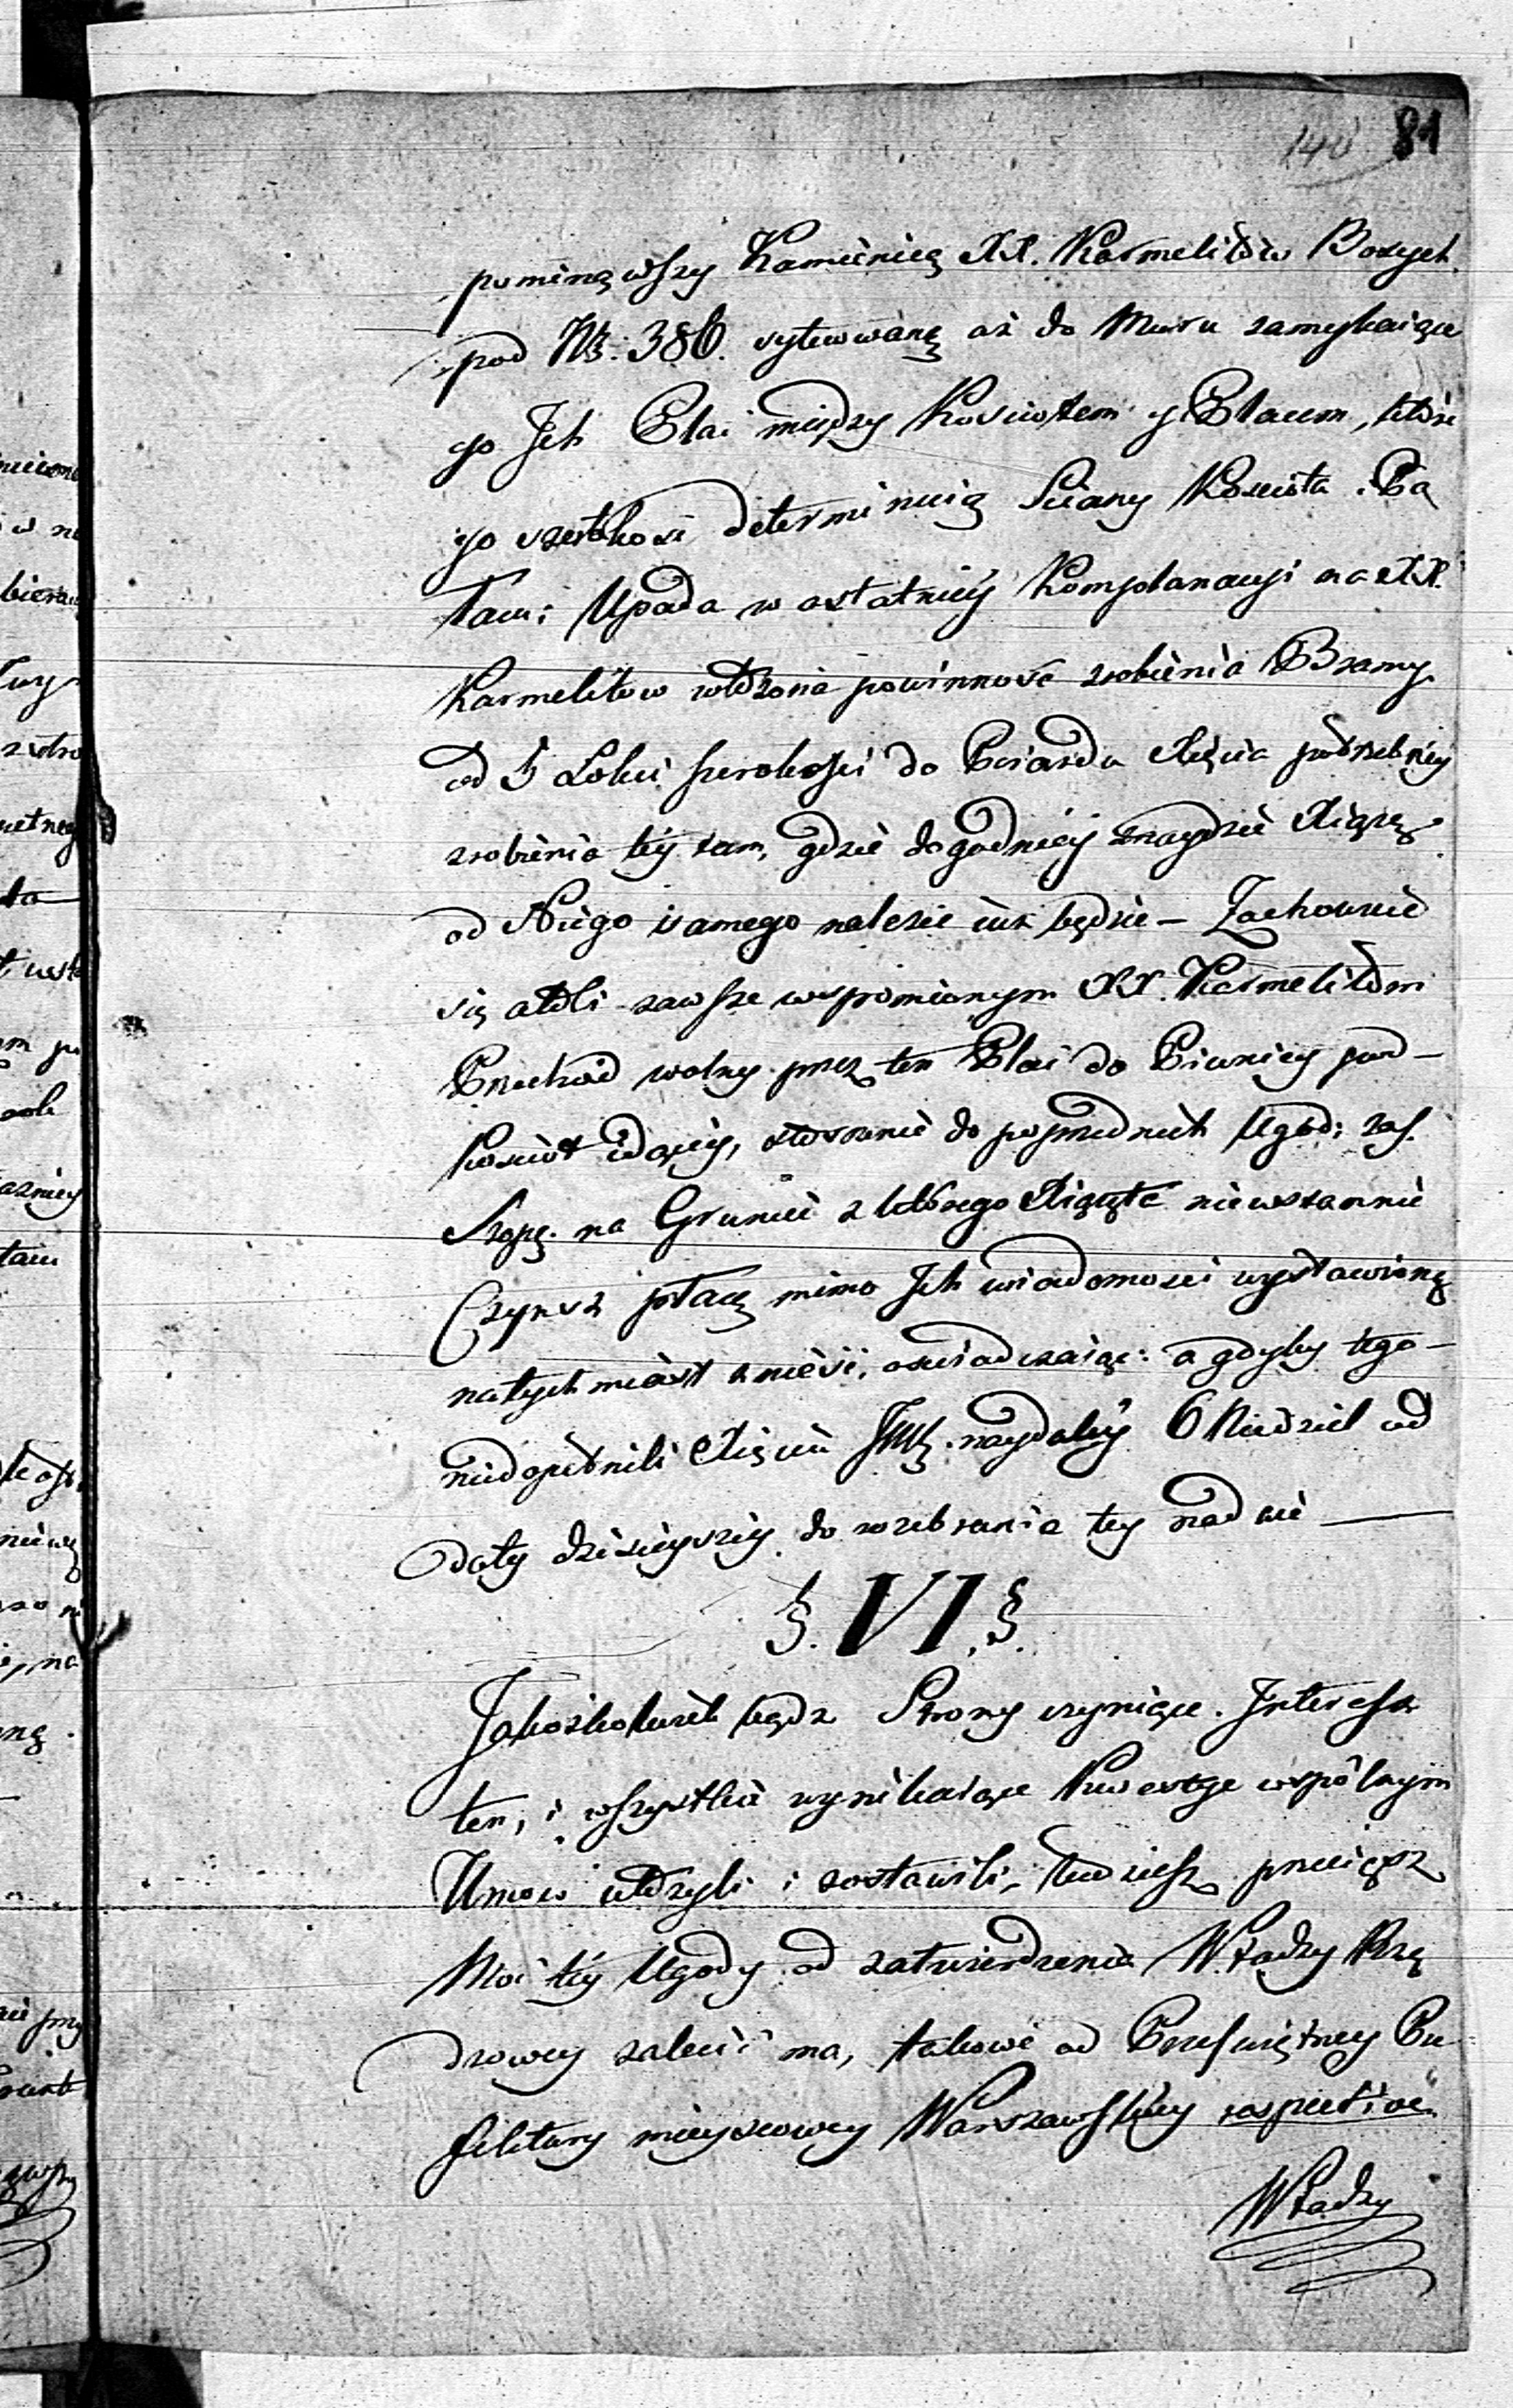 140 81
pominąwszy Kamienicę XX. Karmelitów Bosych
pod Nr̃. 386. sytuowaną aż do Muru zamykaiące
go Ich Plac między Kosciołem y Placem, które
go szerokosc determinuią Sciany Koscioła. Pa
łacu; Upada w ostatniéy Komplanacyi na XX.
Karmelitow włożona powinnosć zrobienia Bramy
od 5 Łokci szerokosci do Poiazdu Xięcia potrzebnéy
zrobienia téy tam, gdzie dogodniéy znaydzie Xiążę
od Niego samego należeć iuż będzie — Zachownie
się atoli zawsze wspomionym XX. Karmelitom
Przechód wolny przez ten Plac do Piwnicy pod —
Kosciół idącéy, stosownie do poprzednich Ugod; zas
Szopę na Gruncie z którego Xiążęta niewzannie
Czynsz płacą mimo Ich wiadomosci wystawioną
natychmiast zniesć, oswiadczaiąc: a gdyby tego —
niedopełnili Xięciu JMci naydaléy 6 Niedziel od
daty dzisieyszéy do rozebrania tey nadaie ——
§. VI. §.
Jakożkolwiek bądz Strony czyniące Interess
ten, i wszystkie wynikaiące Kwestye wspólnym
Umow ułożyli i zostawili, tudziesz przeciąż
Moc téy Ugody od zatwierdzenia Władzy Rzą
dzowey zalecić ma, takowe od Przeswiętney Pre
fektury mieyscowey Warszawskiey respective
Władzy